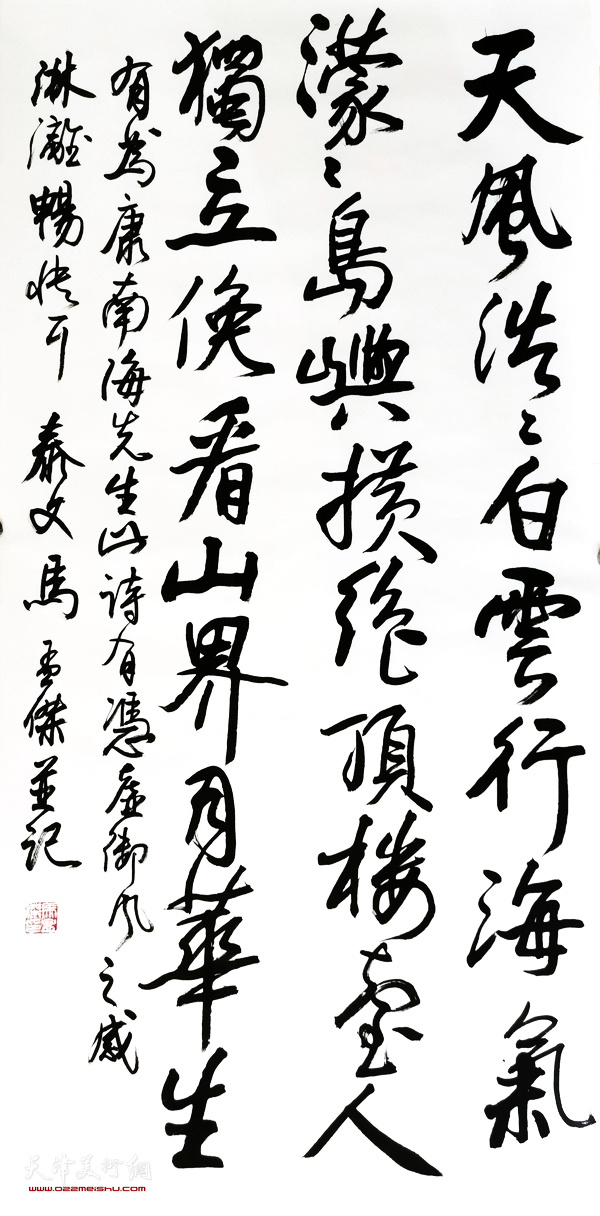 天風浩〻白雲行海氣
濛〻島嶼横絶頂楼臺人
獨立俛看山界月華生
有為康南海先生此詩有憑虛御風之感
淋漓暢快耳 文馬孟傑並記
天津美術網
www.022meishu.com